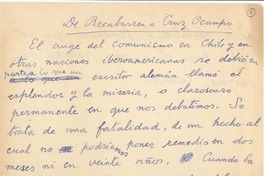 De Recabarren a Cruz Ocampo
El auge del comunismo en Chile y en
otras naciones iberoamericanas se debió en
parte a lo que un escritor alemán llamó el
esplendor y la miseria, o claroscuro
permanente en que nos debatimos. Se
trata de una fatalidad, de un hecho al
cual no podríamos poner remedio en dos
meses ni en veinte años. Cuando la